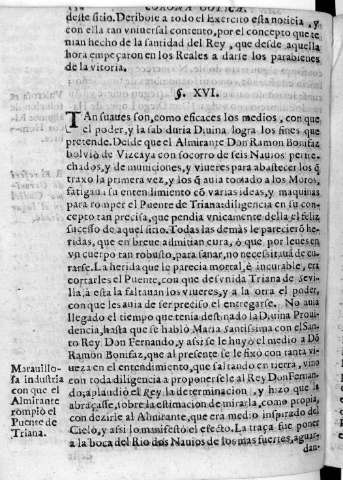 CORONA GOTICA.
deste sitio. Deribose a todo el Exercito esta noticia, y
con ella tan vniuersal contento, por el concepto que te
nian hecho de la santidad del Rey, que desde aquella
hora empeçaron en los Reales a darse los parabienes
de la vitoria.
§. XVI.
TAn suaues son, como eficaces los medios, con que
el poder, y la sabiduria Diuina logra los fines que
pretende. Desde que el Almirante Don Ramon Bonifaz
boluiò de Vizcaya con socorro de seis Nauios pertre-
chados, y de municiones, y viueres para abastecer los q̃
traxo la primera vez, y los q̃ auia tomado a los Moros,
fatigaua su entendimiento cõ varias ideas, y maquinas
para romper el Puente de Triana: diligencia en su con-
cepto tan precisa, que pendia vnicamente della el feliz
sucesso de aquel sitio. Todas las demàs le pareciã he-
ridas, que en breue admitian cura, ò que, por leues en
vn cuerpo tan robusto, para sanar, no necessitaua de cu-
rarse. La herida que le parecia mortal, è incurable, era
cortarles el Puente, con que desvnida Triana de Seui-
lla, à esta la faltauan los viueres, y a la otra el poder,
con que les auia de ser preciso el entregarse. No auia
llegado el tiempo que tenia destinado la Diuina Proui-
dencia, hasta que se hablò Maria Santissima con el San-
to Rey Don Fernando, y assi se le huyò el medio a Dõ
Ramon Bonifaz, que al presente se le fixò con tanta vi-
ueza en el entendimiento, que saltando en tierra, vino
con toda diligencia a proponersele al Rey Don Fernan-
do, aplaudiò el Rey la determinacion, y hizo que la
abraçasse, sobre la estimacion de mirarla, como propia,
con dezirle al Almirante, que era medio inspirado del
Cielo, y assi lo manifestò el efecto. La traça fue poner
a la boca del Rio dos Nauios de los mas fuertes, aguar-
dan-
Marauillo-
sa industria
con que el
Almirante
rompiò el
Puente de
Triana.